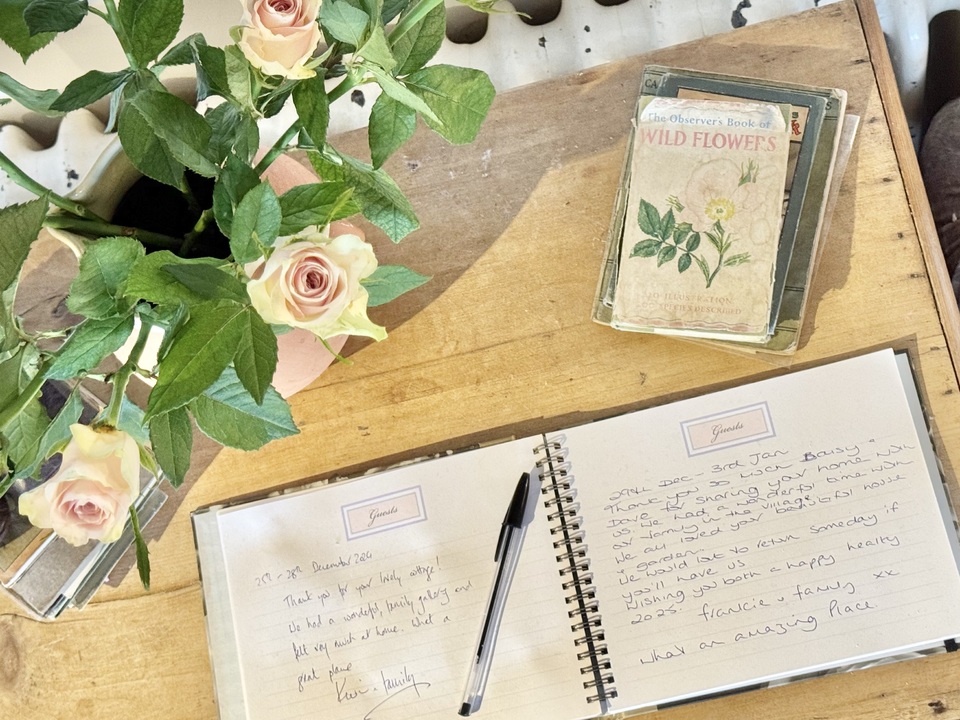 The Observer's Book of
WILD FLOWERS
Guests
25th - 28th December 2024
Thank you for your lovely cottage!
We had a wonderful, family gallery and
felt very much at home. What a
great place
Kevin & family
Guests
29th Dec - 3rd Jan
Thank you so much Daisy &
Dave for sharing your home with
us. We had a wonderful time with
our family in the village.
We all loved your beautiful house
& garden.
We would love to return someday if
you'll have us
Wishing you both a happy healthy
2025. Francie & fanny xx
What an amazing Place.